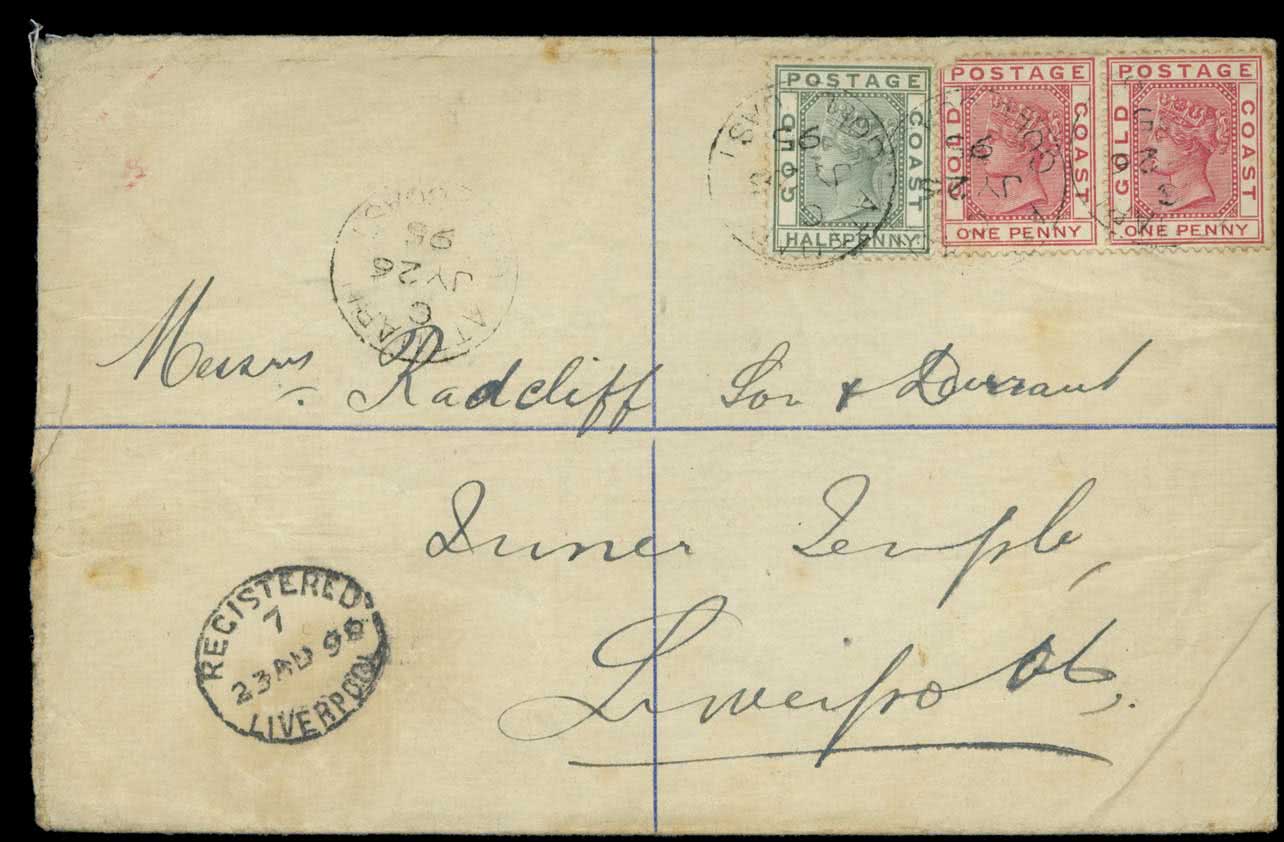 POSTAGE
GOLD COAST
HALFPENNY
POSTAGE
GOLD COAST
ONE PENNY
POSTAGE
GOLD COAST
ONE PENNY
C
JY 26
95
Messrs Radcliff Son & Durrant
Inner Temple,
Liverpool.
REGISTERED
7
23 AU 95
LIVERPOOL